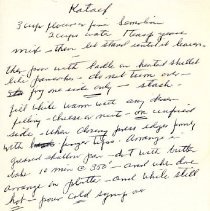 Kataef
3 cups flour or fine Semolin
2 cups water 1 Teasp yeast
mix - then let stand until it leavens.
then pour with ladle on heated skillet
like pancakes - do not turn over -
fry one side only - stack -
fill while warm with any desired
filling - cheese or nut - on unfried
side, when closing press edges firmly
with finger tips. Arrange in
greased shallow pan - dot with butter
bake 10 min @ 350° - and when done
arrange on platter - and while still
hot - pour cold syrup on